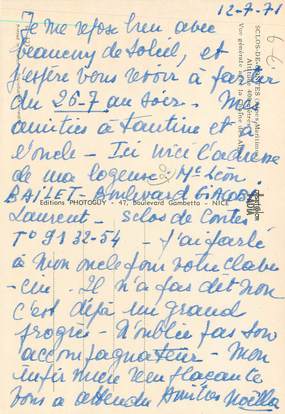 12-7-71
Je me repose bien avec
beaucoup de soleil, et
j'espère vous revoir à partir
du 26-7 au soir - Mes
amitiés à Tantine et à
l'oncle - Ici voici l'adresse
de ma logeuse Me Léon
BAILET - Boulevard GIACOBI
Laurent - Sclos de Contes
To 91 32-54 - J'ai parlé
à mon oncle pour votre clave-
cin. Il n'a pas dit non
c'est déjà un grand
progrès - N'oublie pas son
accompagnateur - Mon
infirmière remplaçante
vous a attendu Amitiés Noëlla
SCLOS-DE-CONTES (Alpes-Maritimes)
Altitude
Vue générale
Editions PHOTOGUY - 47, Boulevard Gambetta - NICE